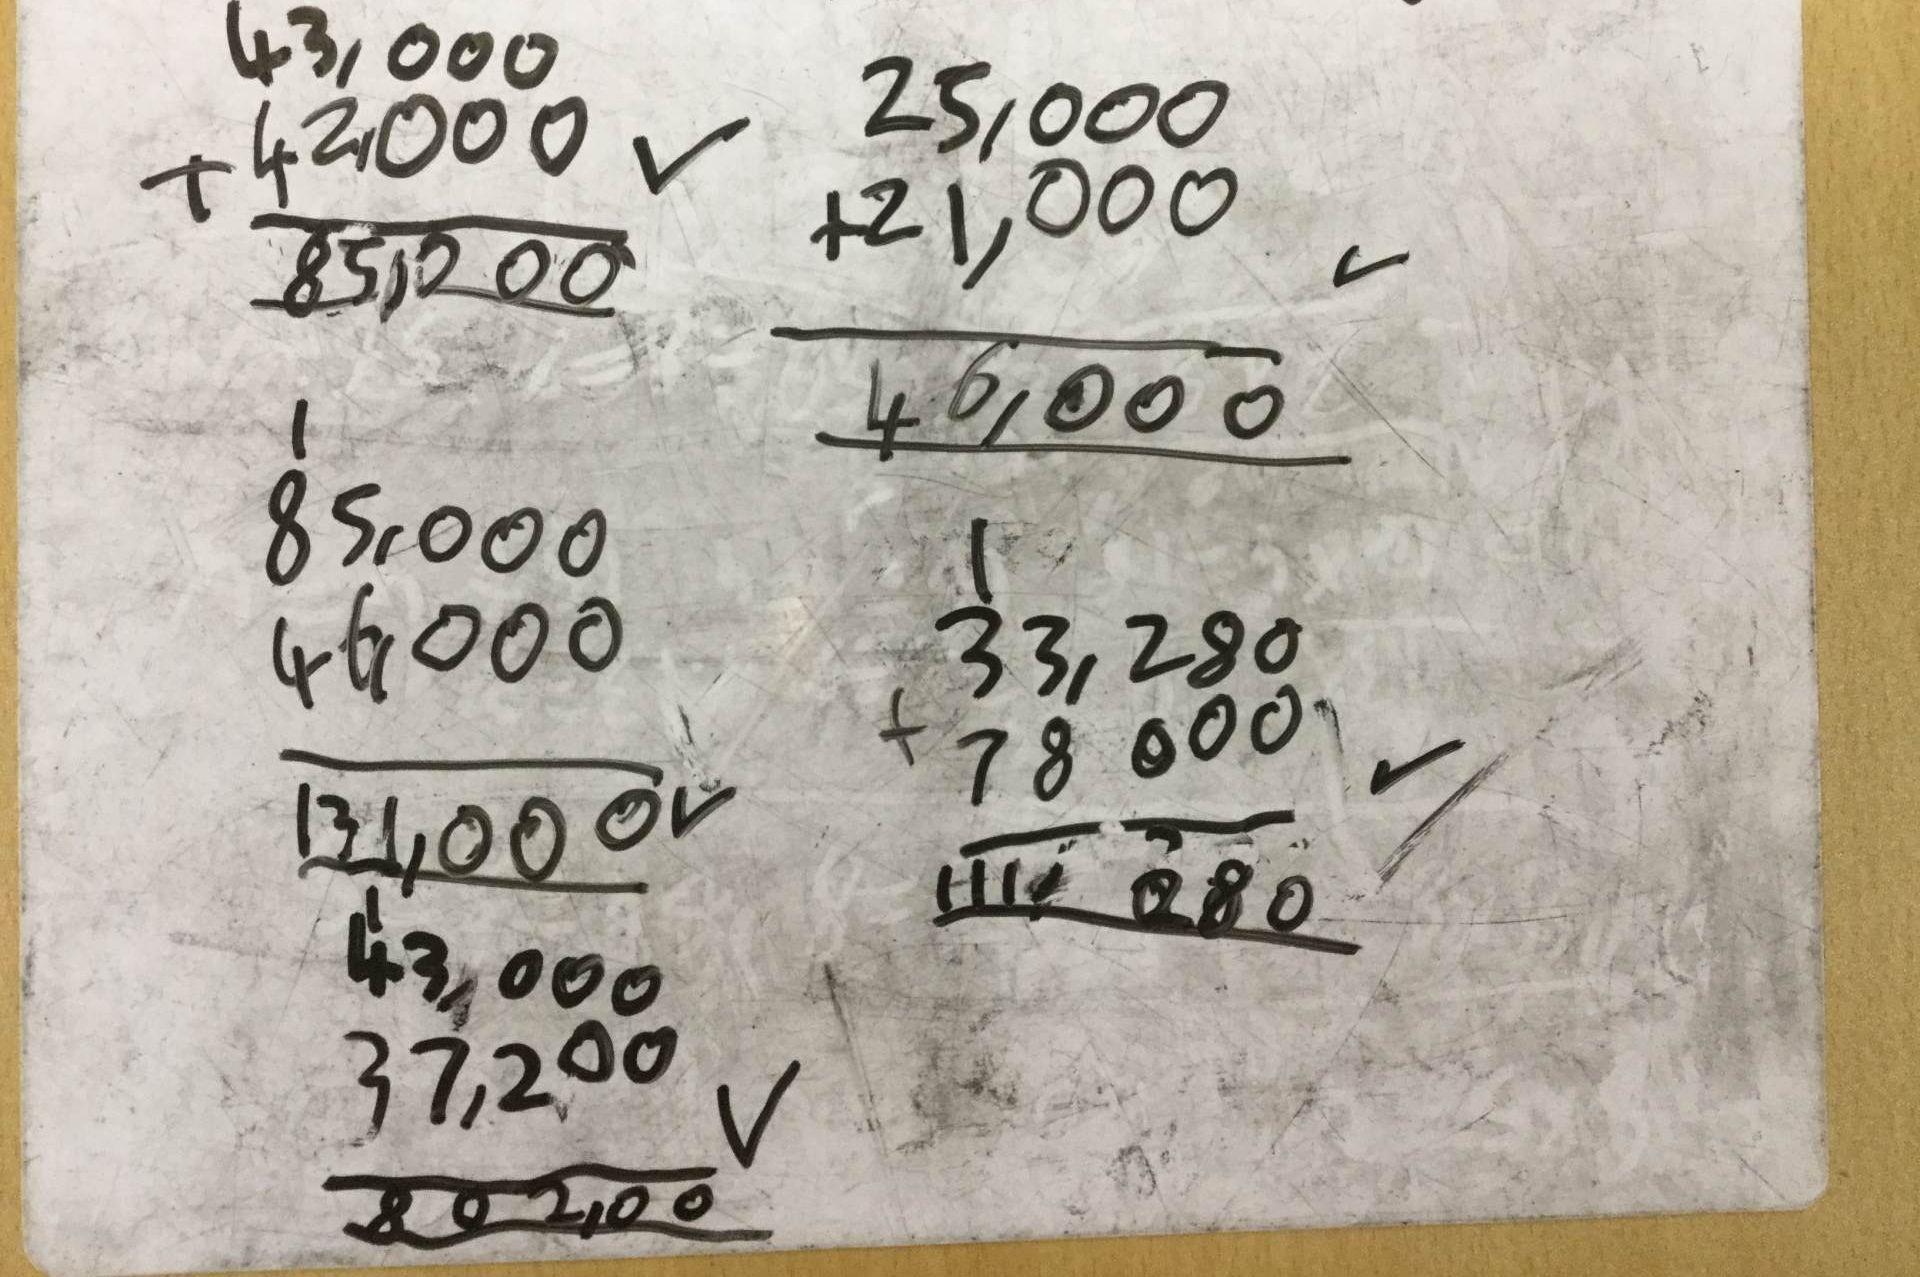 43,000
+ 42,000 ✓
85,000
25,000
+21,000
✓
46,000
1
85,000
46,000
131,000 ✓
1
33,280
+ 78 000
✓
111, 280
1
43,000
37,200
✓
802,00